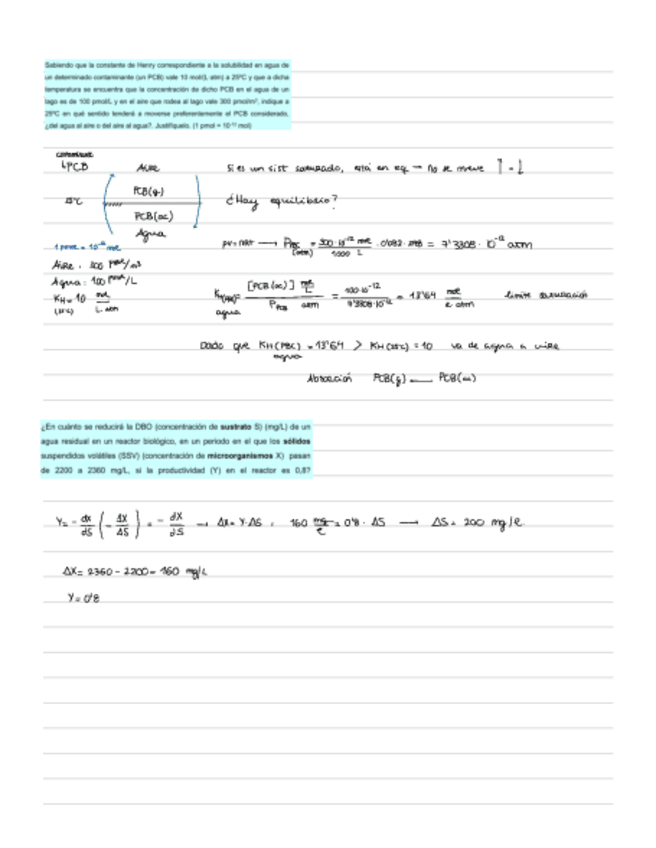 Sabiendo que la constante de Henry correspondiente a la solubilidad en agua de
un determinado contaminante (un PCB) vale 10 mol/(L atm) a 25ºC y que a dicha
temperatura se encuentra que la concentración de dicho PCB en el agua de un
lago es de 100 pmol/L y en el aire que rodea al lago vale 300 pmol/m³, indique a
25ºC en qué sentido tenderá a moverse preferentemente el PCB considerado,
¿del agua al aire o del aire al agua?. Justifíquelo. (1 pmol = 10⁻¹² mol)
contaminante
↳PCB Aire Si es un sist saturado, está en eq → No se mueve
PCB(g)
25ºC ¿Hay equilibrio?
PCB(ac)
Agua
1 pmol = 10⁻¹² mol
Aire: 300 pmol/m³
Agua: 100 pmol/L
KH = 10 mol / L atm
(25ºC)
PV=nRT → = 300·10⁻¹² mol / 1000 L · 0'082 · 298 = 7'3308 · 10⁻¹² atm
(atm)
[PCB(ac)] mol/L / P PCB atm = 100·10⁻¹² / 7'3308·10⁻¹² = 13'64 mol / l atm limite saturación
agua
Dado que KH(PBC) = 13'64 > KH(25ºC) = 10 va de agua a aire
agua
Absorción PCB(g) — PCB(ac)
¿En cuánto se reducirá la DBO (concentración de sustrato S) (mg/L) de un
agua residual en un reactor biológico, en un periodo en el que los sólidos
suspendidos volátiles (SSV) (concentración de microorganismos X) pasan
de 2200 a 2360 mg/L, si la productividad (Y) en el reactor es 0,8?
Y = - dx/dS (- ΔX/ΔS) = - dX/dS → ΔX = Y·ΔS 160 mg/l = 0'8 · ΔS → ΔS = 200 mg/l
ΔX = 2360 - 2200 = 160 mg/L
Y = 0'8